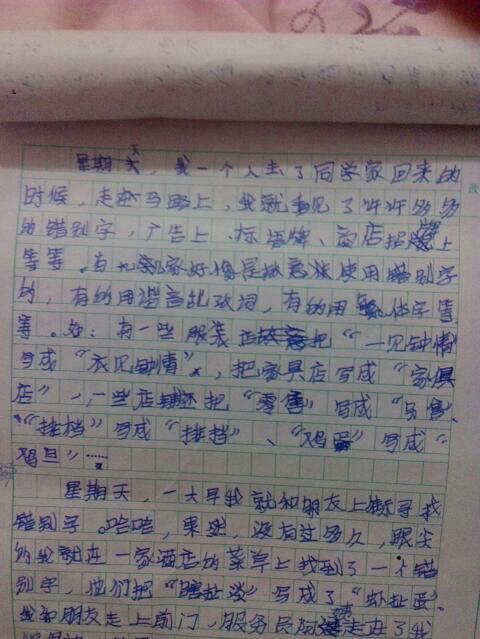 星期天，我一个人去了同学家回来的
时候，走在马路上，我就看见了许许多多
的错别字，广告上、标语牌、商店招牌上
等等。有些商家好像是故意使用错别字
的，有的用谐音乱改词，有的用繁体字等
等。如：有一些服装店故意把“一见钟情”
写成“衣见钟情”，把家具店写成“家俱
店”，一些店还把“零售”写成“另售”、
“排档”写成“排挡”、“鸡蛋”写成“
鸡旦”……
星期天，一大早我就和朋友上街寻找
错别字。哈哈，果然，没有过多久，眼尖
的我就在一家酒店的菜单上找到了一个错
别字，他们把“瞎扯淡”写成了“虾扯蛋”。
我和朋友走上前门，服务员阿姨走在了我